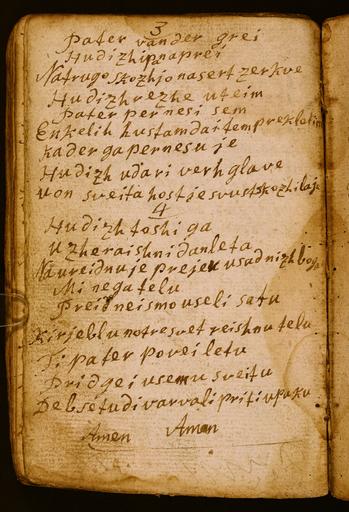 3
Pater vander grei
Hudizhipnaprei
Natrugo skozhjo nasert zerkve
Hudizh rezhe uteim
Pater pernesi sem
Enkelih hustamdaitempreklelin
kader gapernesuje
Hudizh udari verh glave
von sveita hostjesvust skozhilaje
4
Hudizh toshi ga
uzheraishnidanleta
Navreidnuje prejeu usadnizh boga
Mi negatelu
Preidneismo useli satu
Kirjeblu notresvet reishnu telu
Ti pater poveiletu
Pridgei usemu sveitu
Debsetudi varvali priti upaku
Amen Amen